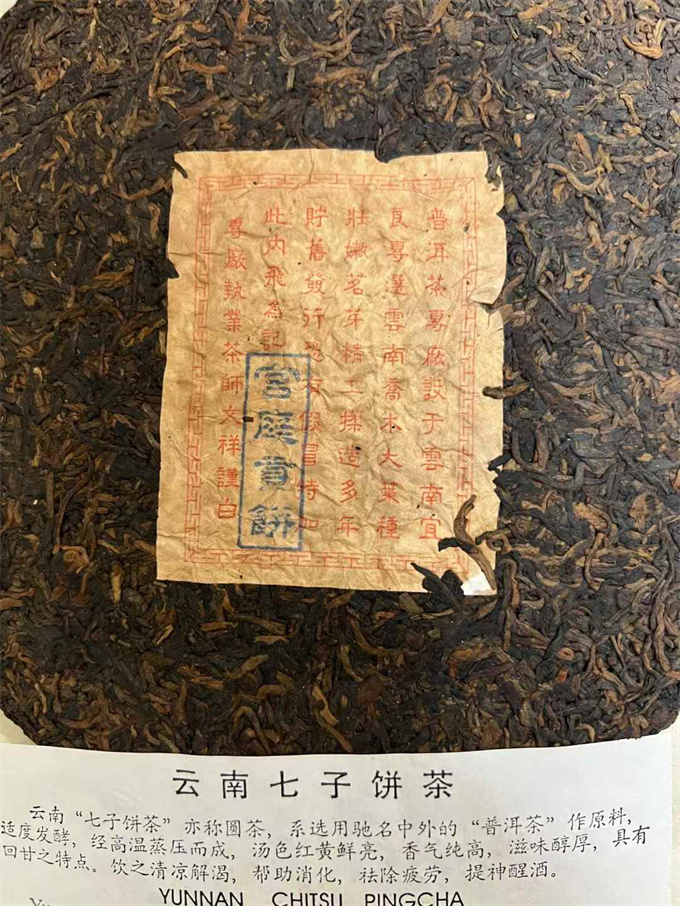 普洱茶專廠設于雲南宜
良專選雲南喬木大葉種
壯嫩茗芽精工揉造多年
貯舊發行恐有假冒特加
此內飛為記
專廠執業茶師文祥謹白
宮庭貢餅
云南七子饼茶
云南“七子饼茶”亦称圆茶，系选用驰名中外的“普洱茶”作原料，
适度发酵，经高温蒸压而成，汤色红黄鲜亮，香气纯高，滋味醇厚，具有
回甘之特点。饮之清凉解渴，帮助消化，祛除疲劳，提神醒酒。
YUNNAN CHITSU PINGCHA